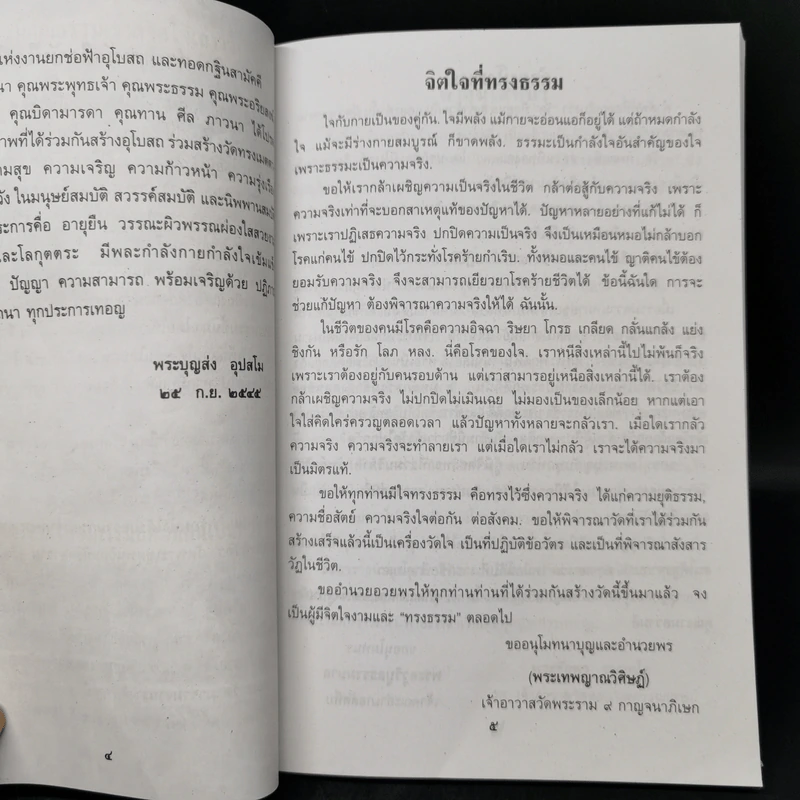 แห่งงานยกช่อฟ้าอุโบสถ และทอดกฐินสามัคคี
นา คุณพระพุทธเจ้า คุณพระธรรม คุณพระอริยสงฆ์
คุณบิดามารดา คุณทาน ศีล ภาวนา
ภาพที่ได้ร่วมกันสร้างอุโบสถ ร่วมสร้างวัดทรงเมตตา
ความสุข ความเจริญ ความก้าวหน้า ความรุ่งเรือง
วัง ในมนุษย์สมบัติ สวรรค์สมบัติ และนิพพานสมบัติ
ประการคือ อายุยืน วรรณะผิวพรรณผ่องใสสวยงาม
และโลกุตตระ มีพละกำลังกายกำลังใจเข้มแข็ง
ปัญญา ความสามารถ พร้อมเจริญด้วย
ทุกประการเทอญ
พระบุญส่ง อุปสโม
๒๕ ก.ย. ๒๕๔๕
๔
จิตใจที่ทรงธรรม
ใจกับกายเป็นของคู่กัน. ใจมีพลัง แม้กายจะอ่อนแอก็อยู่ได้ แต่ถ้าหมดกำลัง
ใจ แม้จะมีร่างกายสมบูรณ์ ก็ขาดพลัง. ธรรมะเป็นกำลังใจอันสำคัญของใจ
เพราะธรรมะเป็นความจริง.
ขอให้เรากล้าเผชิญความเป็นจริงในชีวิต กล้าต่อสู้กับความจริง เพราะ
ความจริงเท่าที่จะบอกสาเหตุแท้ของปัญหาได้. ปัญหาหลายอย่างที่แก้ไม่ได้ ก็
เพราะเราปฏิเสธความจริง ปกปิดความเป็นจริง จึงเป็นเหมือนหมอไม่กล้าบอก
โรคแก่คนไข้ ปกปิดไว้กระทั่งโรคร้ายกำเริบ. ทั้งหมอและคนไข้ ญาติคนไข้ต้อง
ยอมรับความจริง จึงจะสามารถเยียวยาโรคร้ายชีวิตได้ ข้อนี้ฉันใด การจะ
ช่วยแก้ปัญหา ต้องพิจารณาความจริงให้ได้ ฉันนั้น.
ในชีวิตของคนมีโรคคือความอิจฉา ริษยา โกรธ เกลียด กลั่นแกล้ง แย่ง
ชิงกัน หรือรัก โลภ หลง. นี่คือโรคของใจ. เราหนีสิ่งเหล่านี้ไปไม่พ้นก็จริง
เพราะเราต้องอยู่กับคนรอบด้าน แต่เราสามารถอยู่เหนือสิ่งเหล่านี้ได้. เราต้อง
กล้าเผชิญความจริง ไม่ปกปิดไม่เมินเฉย ไม่มองเป็นของเล็กน้อย หากแต่เอา
ใจใส่คิดใคร่ครวญตลอดเวลา แล้วปัญหาทั้งหลายจะกลัวเรา. เมื่อใดเรากลัว
ความจริง ความจริงจะทำลายเรา แต่เมื่อใดเราไม่กลัว เราจะได้ความจริงมา
เป็นมิตรแท้.
ขอให้ทุกท่านมีใจทรงธรรม คือทรงไว้ซึ่งความจริง ได้แก่ความยุติธรรม,
ความซื่อสัตย์ ความจริงใจต่อกัน ต่อสังคม. ขอให้พิจารณาวัดที่เราได้ร่วมกัน
สร้างเสร็จแล้วนี้เป็นเครื่องวัดใจ เป็นที่ปฏิบัติข้อวัตร และเป็นที่พิจารณาสังสาร
วัฏในชีวิต.
ขออำนวยอวยพรให้ทุกท่านท่านที่ได้ร่วมกันสร้างวัดนี้ขึ้นมาแล้ว จง
เป็นผู้มีจิตใจงามและ “ทรงธรรม” ตลอดไป
ขออนุโมทนาบุญและอำนวยพร
(พระเทพญาณวิศิษฏ์)
เจ้าอาวาสวัดพระราม ๙ กาญจนาภิเษก
๕